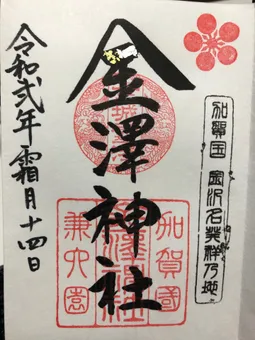 加賀国 金沢名発祥乃地
金澤神社
加賀國
金澤神社
兼六園
令和弐年 霜月十四日